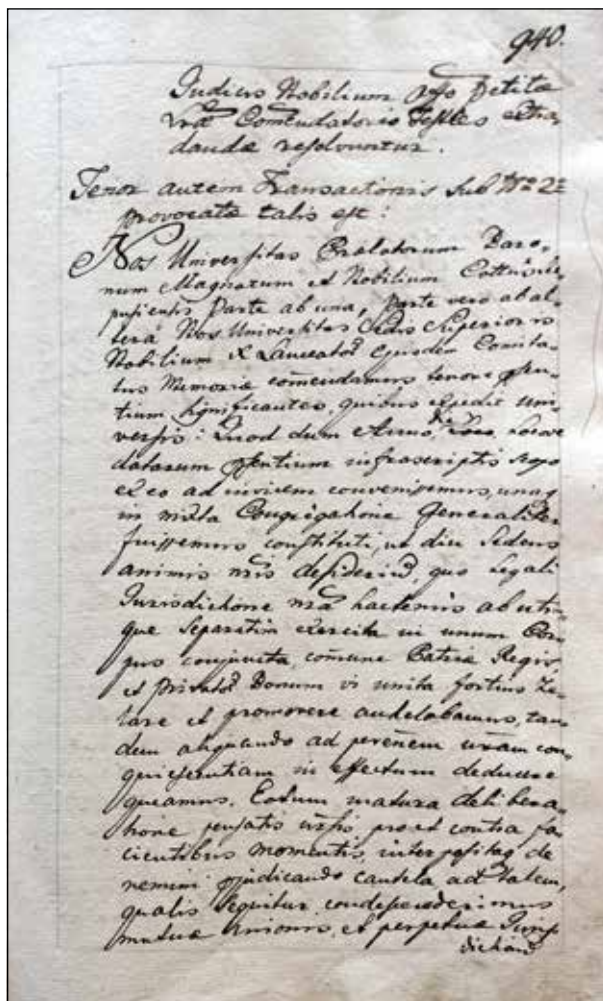 940.
Judices Nobilium pro petitae
vrae Comendatorio Testes extra
dandae resolvuntur.
Tenor autem Transactionis sub Nro 2o
provocatae talis est:
Nos Universitas Praelatorum Baro-
num Magnatum et Nobilium Cottus Sce-
pusiensis Parte ab una, parte vero ab al-
tera Nos Universitas Sedis Superioris
Nobilium X Lanceator ejusdem Comita-
tus Memoriae comendamus tenore pn-
tium significantes, quibus expedit uni-
versis: Quod dum Anno, Die, Loco
datarum pntium infrascriptis
ex eo ad invicem convenissemus, unaq
in mixta Congregatione Generaliter
fuissemus constituti, ut diu sedens
animis nris desiderium, quo Legali
Jurisdictione nra hactenus ab utri-
que separatim exercita in unum Cor-
pus conjuncta, comune Patriae Regis,
et privator Bonum vi unita fortius Ze-
lare et promovere anhelabamus, tan-
dem aliquando ad perennem nram con-
quiescentiam in effectum deducere
queamus. Eotum matura delibera-
tione pensatis ursis pro et contra fa-
cientibus momentis, interpositaq de
nemini pjudicando cautela ad talem,
qualis sequitur condescenderimus
mutuae Unionis, et perpetuae Juris
dictiones